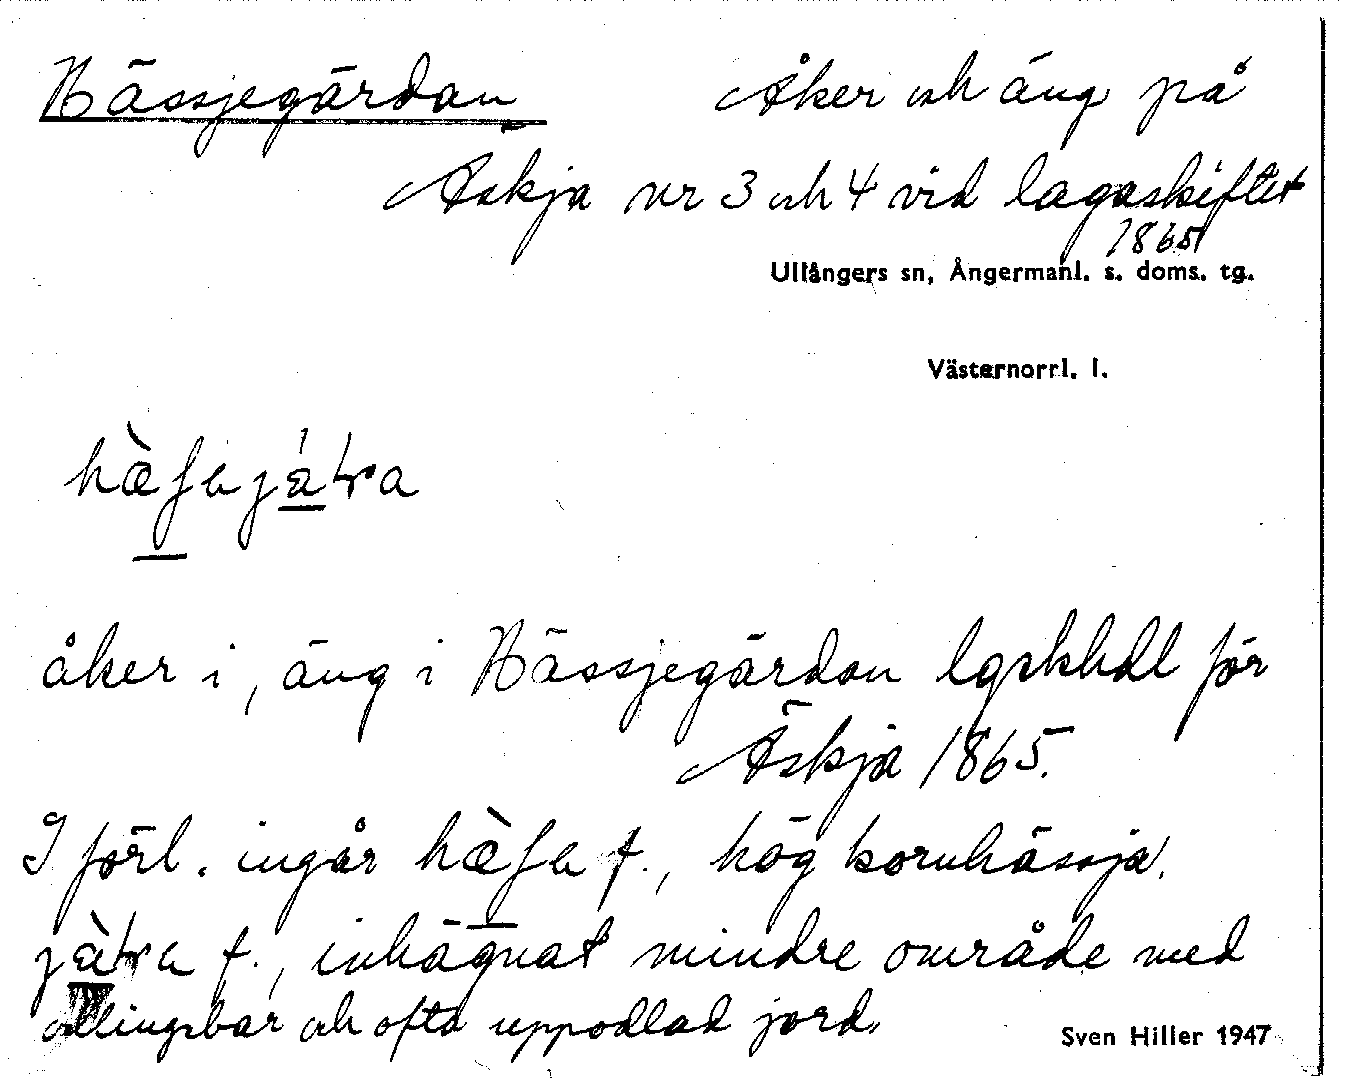 Hässjegärdan
Åker och äng på
Äskja nr 3 och 4 vid lagaskiftet
1865
Ullångers sn, Ångermanl. s. doms. tg.
Västernorrl. l.
åker i, äng i Hässjegärdan lgskhdl för
Äskja 1865.
I förl. ingår f., hög kornhässja.
f., inhägnat mindre område med
odlingsbar och ofta uppodlad jord.
Sven Hiller 1947